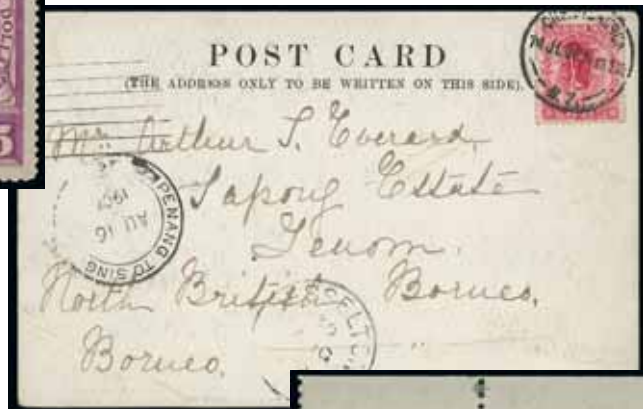 POST CARD
(THE ADDRESS ONLY TO BE WRITTEN ON THIS SIDE).
Mr Arthur S. Everard,
Sapong Estate
Tenom.
North British Borneo.
Borneo.
PENANG TO SING
AU 16
190
N.Z.
5